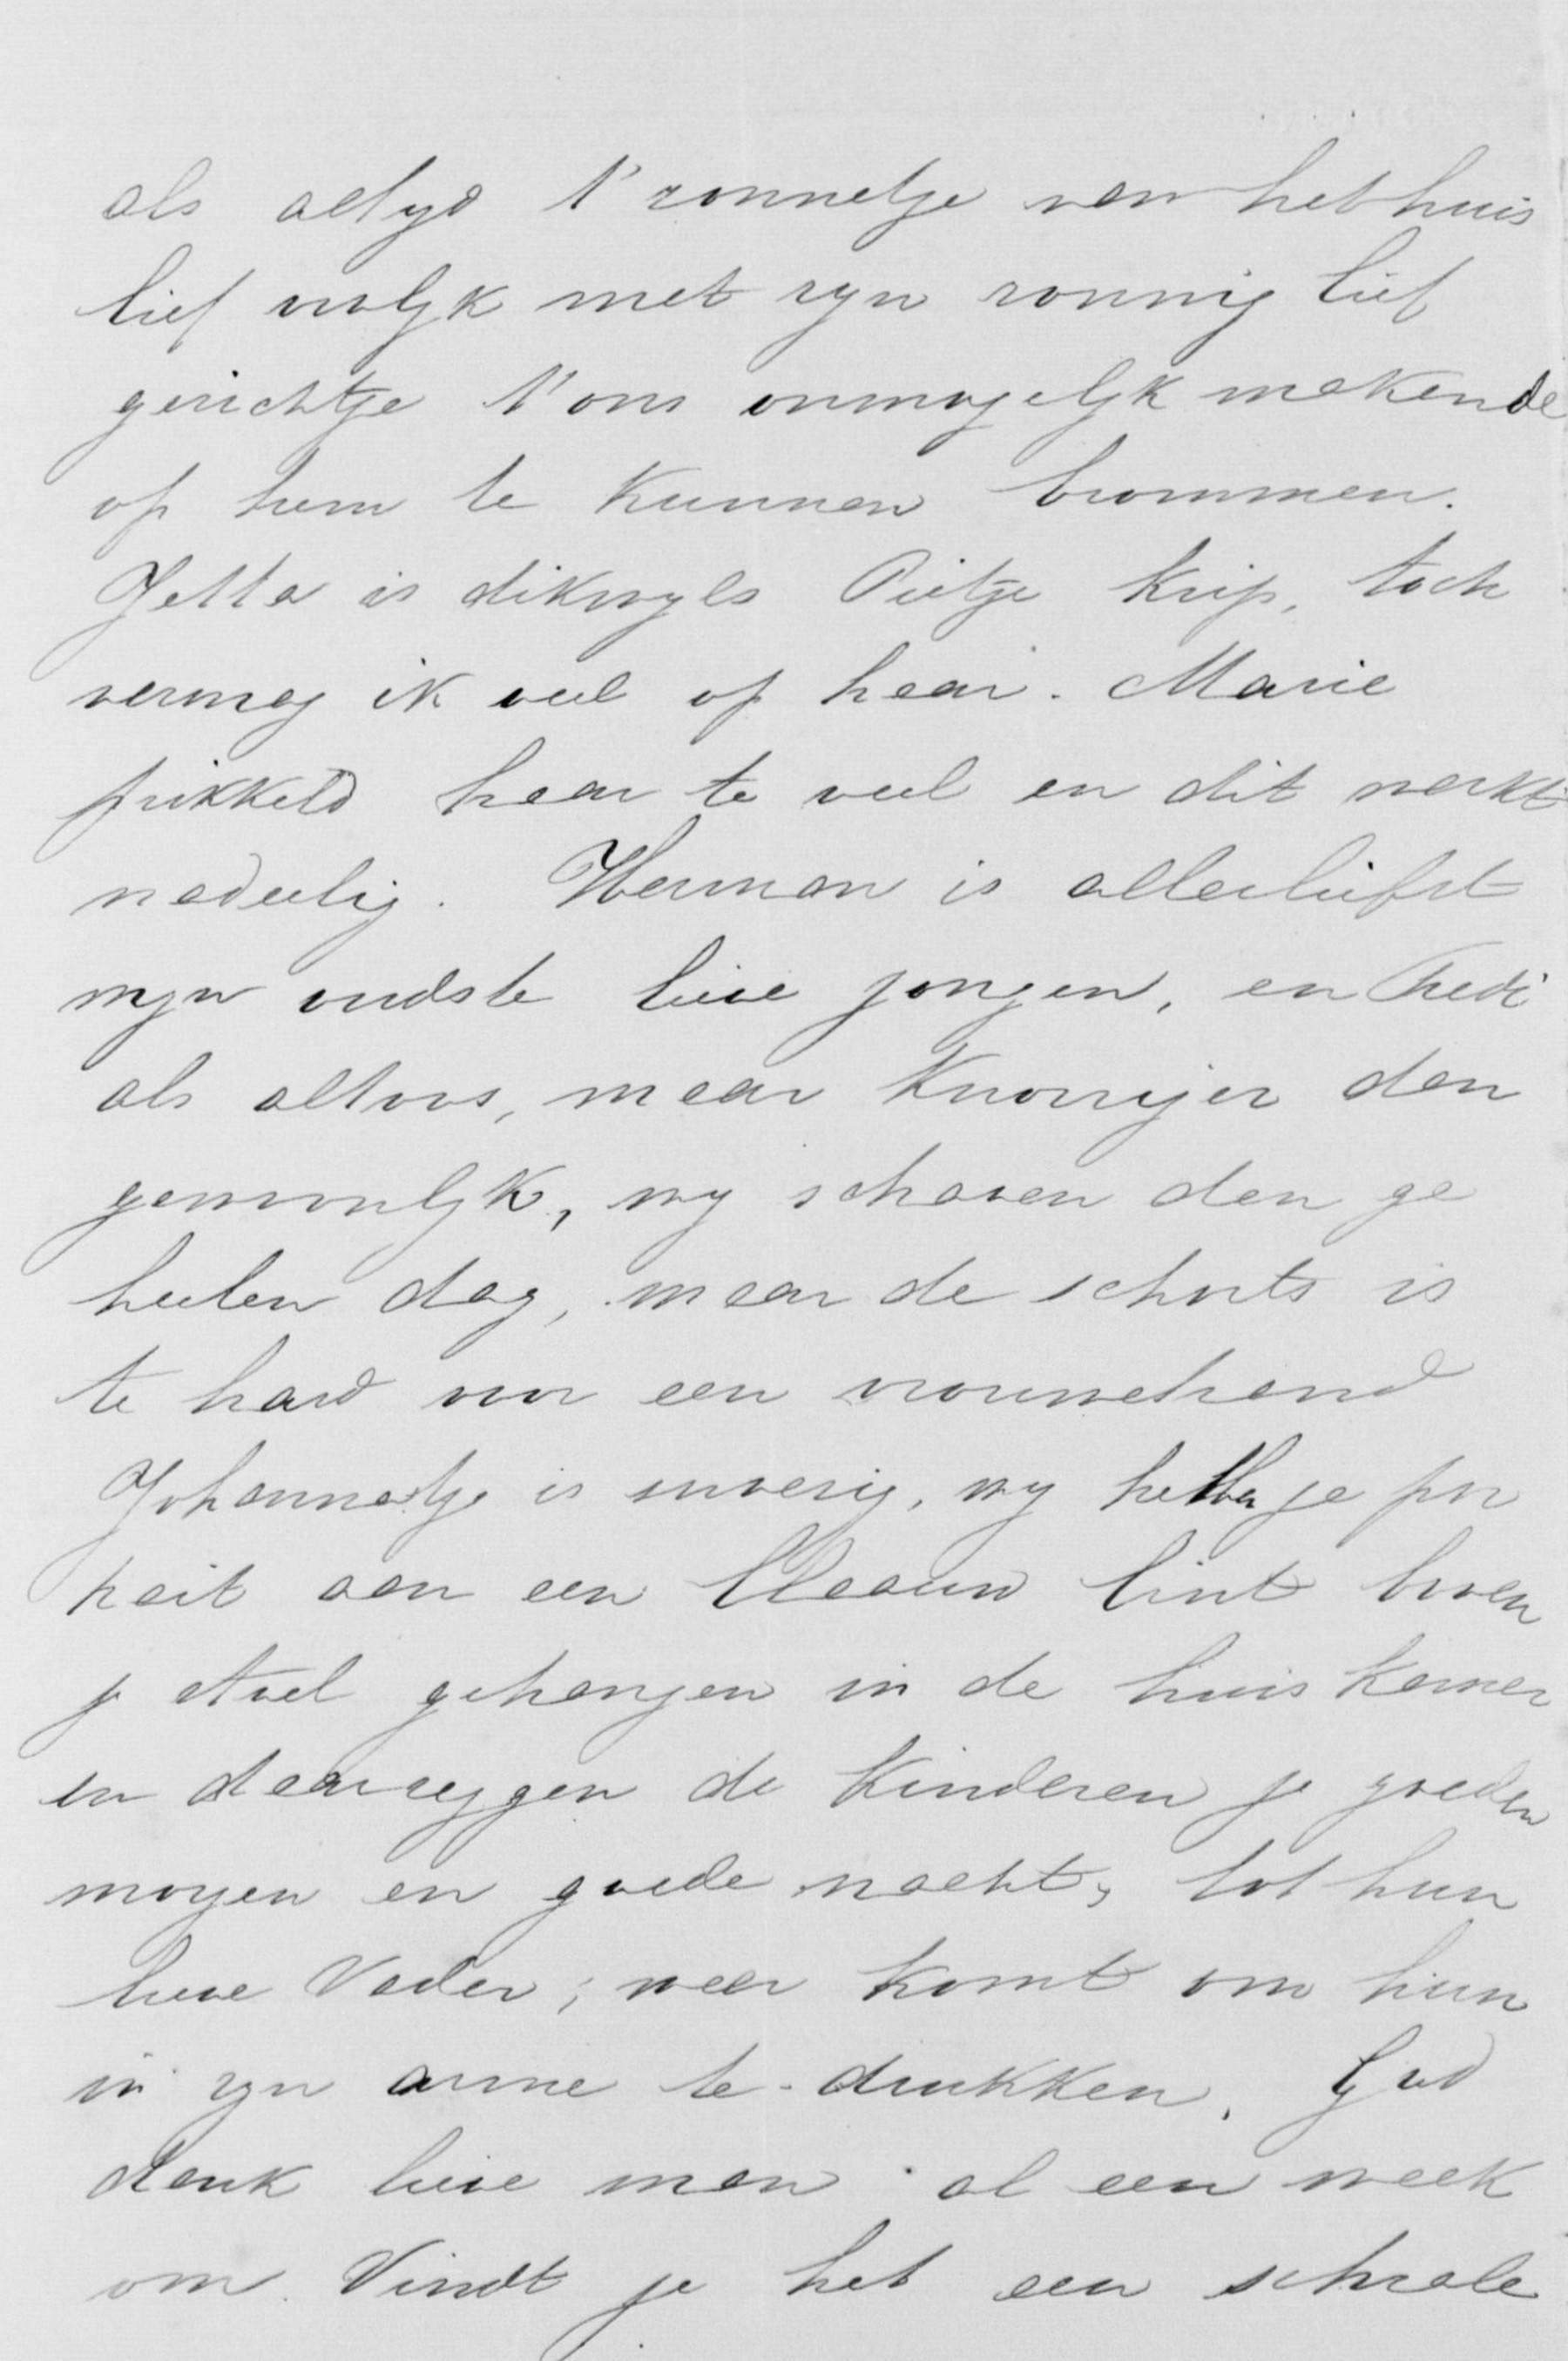 als altyd t' zonnetje van het huis
lief vrolyk met zyn zonnig lief
gezichtje t' ons onmogelyk makende
op hem te kunnen brommen.
Jetta is dikwyls Pietje krip, toch
vermag ik veel op haar. Marie
prikkeld haar te veel en dit werkt
nadeelig. Herman is allerliefst
myn oudste lieve jongen, en Thedi
als altoos, maar knorriger dan
gewoonlyk, wy schaven den ge
heelen dag, maar de schors is
te hard voor een vrouwehand
Johannatje is snoezig, wy hebben je por
trait aan een blaauw lint boven
je stoel gehangen in de huis kamer
en daar zeggen de kinderen je goeden
morgen en goede nacht, tot hun
lieve Vader, weer komt om hun
in zyn arme te drukken. God
dank lieve man al een week
om. Vindt je het een schrale